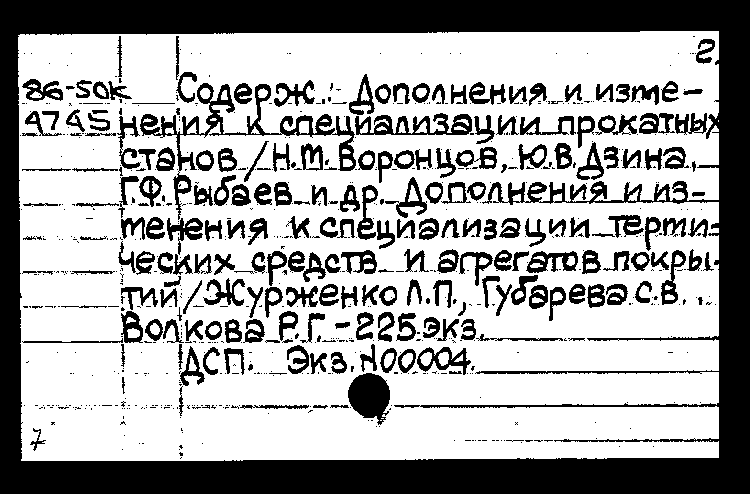 2.
86-50к Содерж.: Дополнения и изме-
4745 нения к специализации прокатных
станов / Н.М. Воронцов, Ю.В. Дзина,
Г.Ф. Рыбаев и др. Дополнения и из-
менения к специализации терми-
ческих средств и агрегатов покры-
тий / Журженко Л.П., Губарева С.В.,
Волкова Р.Г. - 225 экз.
ДСП. Экз. N00004.
7